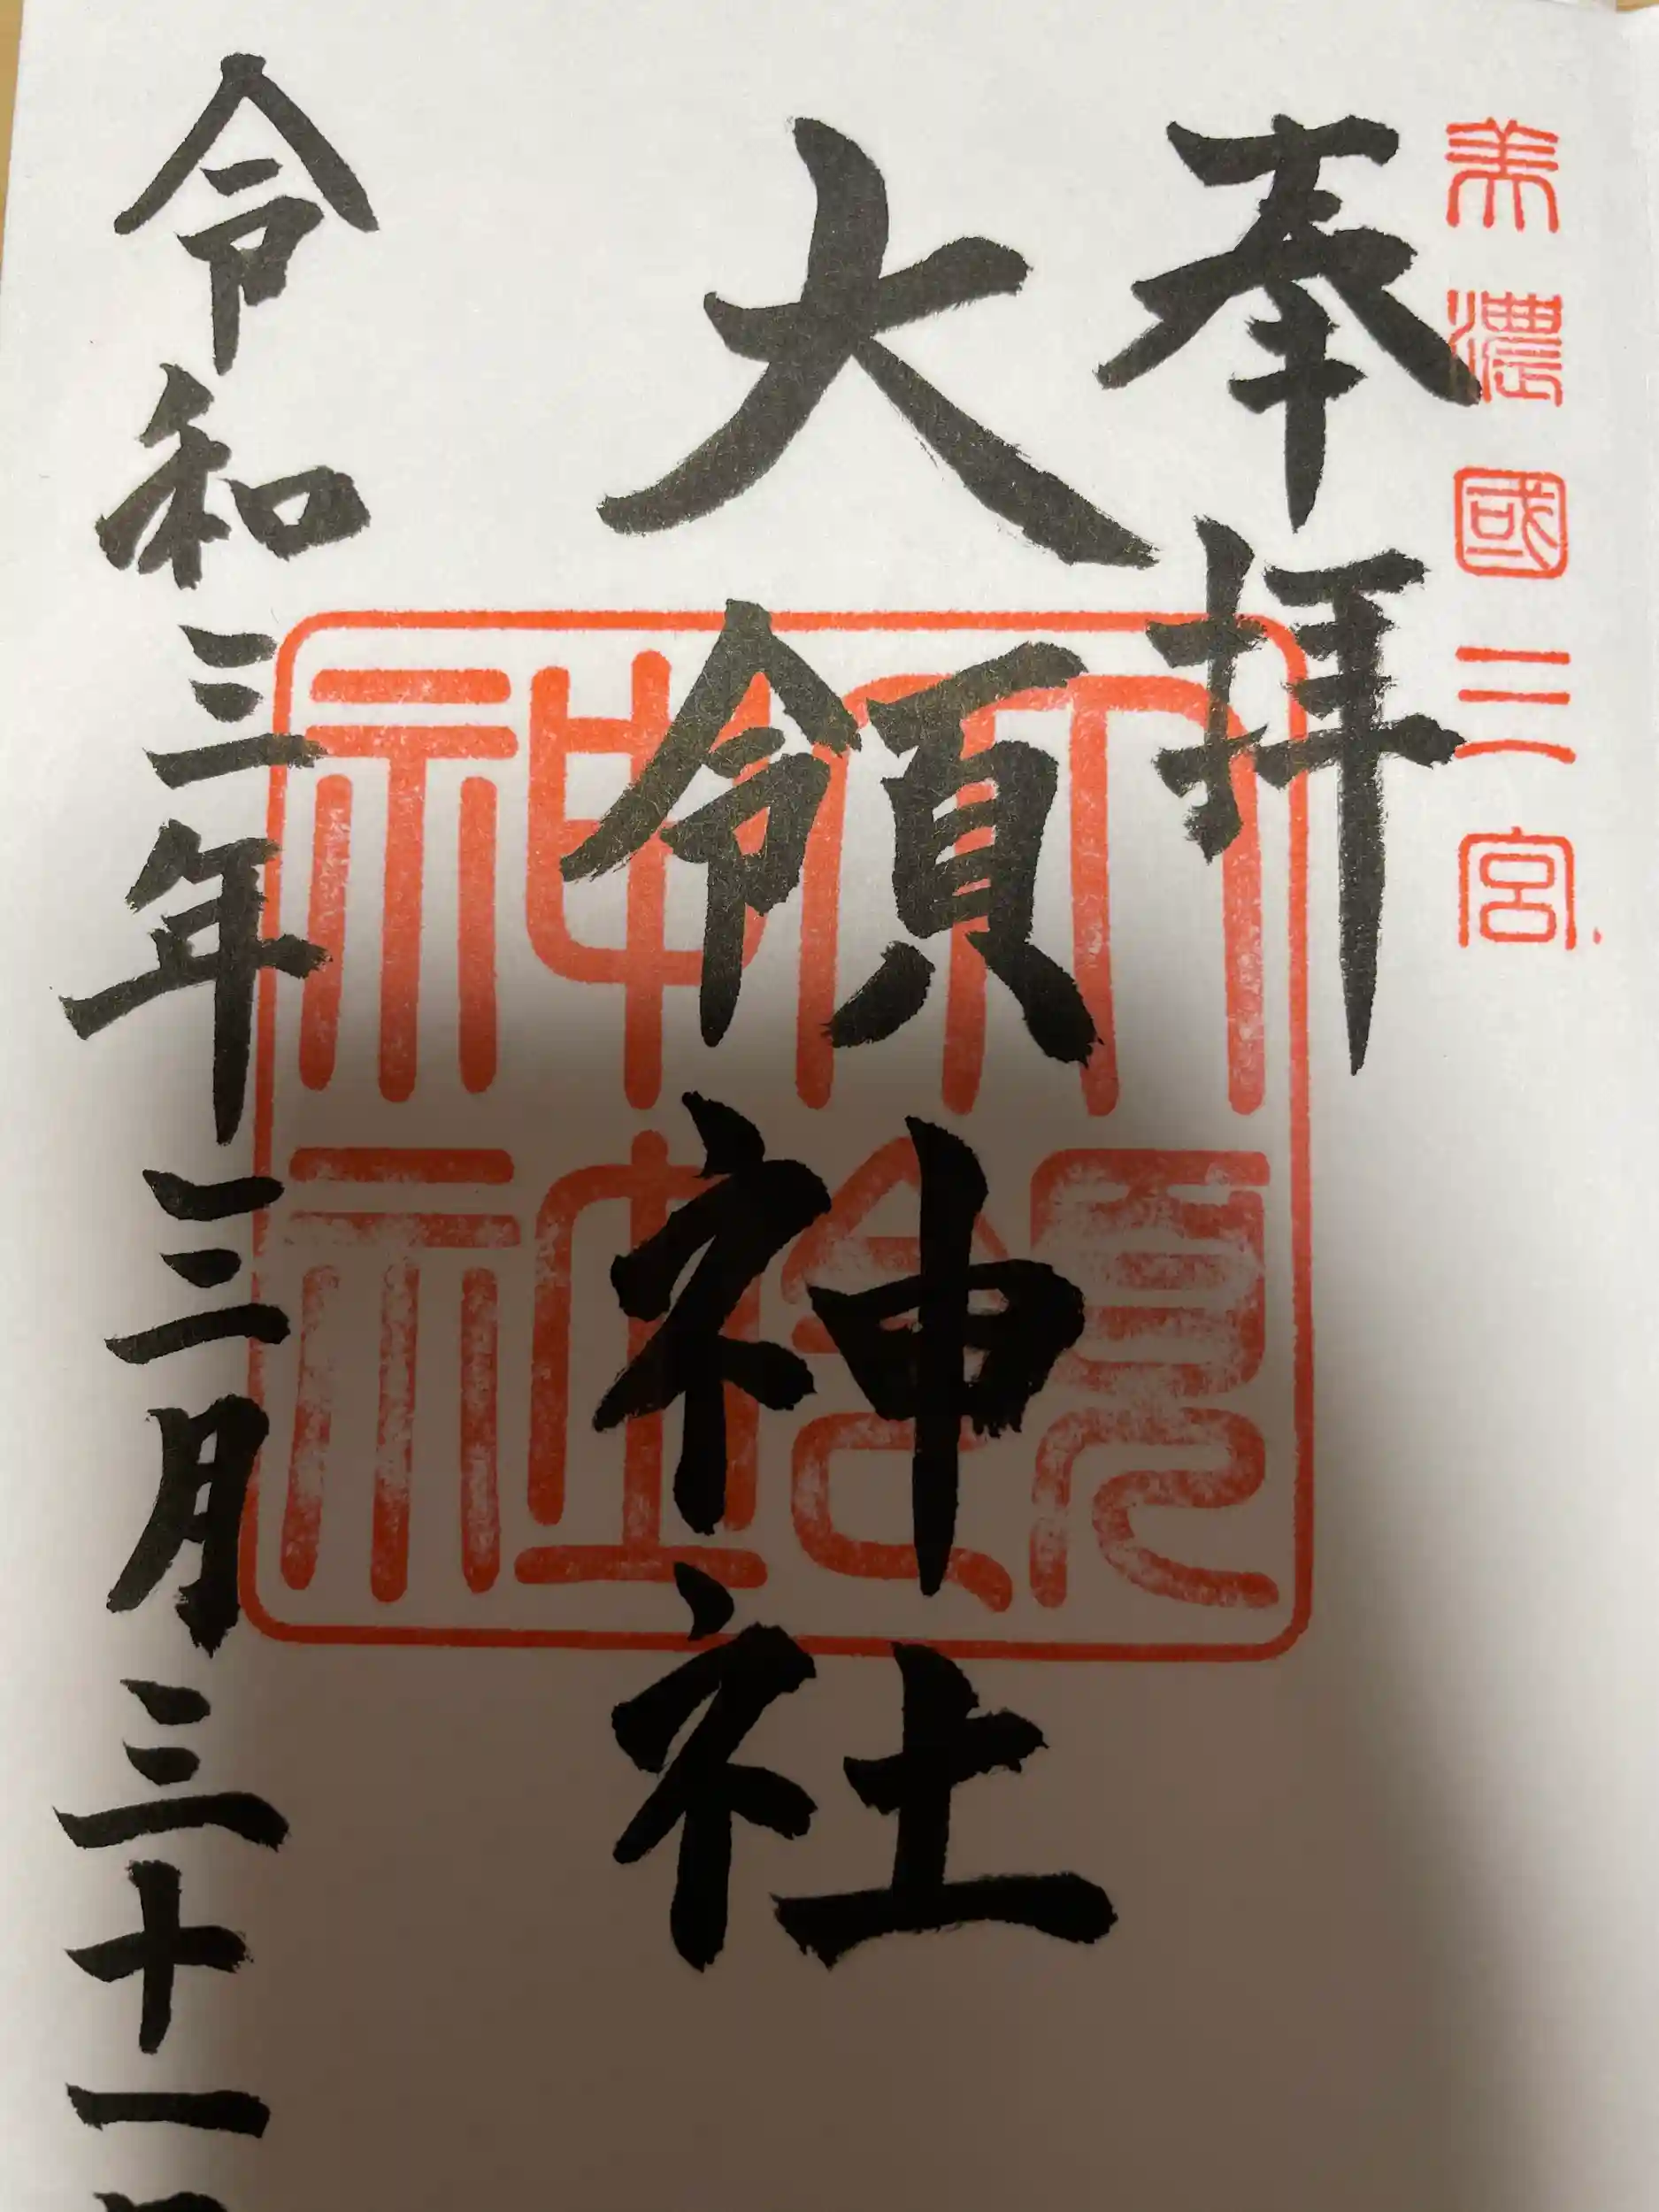 美濃國三宮
奉拝
大領神社
大領
神社
令和三年三月三十一